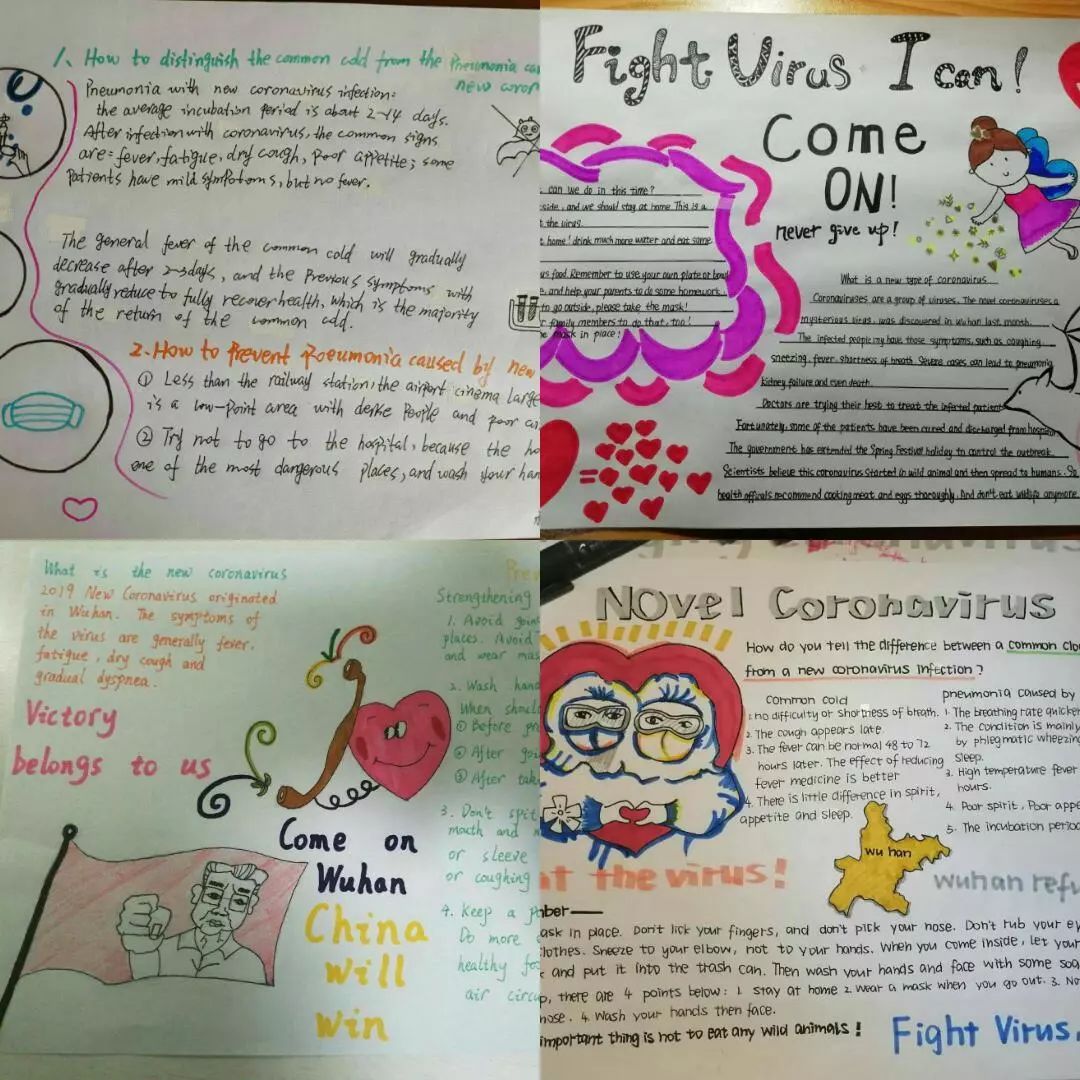 1、How to distinguish the common cold from the Pneumonia
new
Pneumonia with new coronavirus infection:
the average incubation period is about 2-14 days.
After infection with coronavirus, the common signs
are: fever, fatigue, dry cough, poor appetite; some
patients have mild sympotoms, but no fever.
The general fever of the common cold will gradually
decrease after 2-3days, and the Previous symptoms with
gradually reduce to fully recover health, which is the majority
of the return of the common cold.
2. How to Prevent Pneumonia caused by new
① Less than the railway station, the airport cinema large
is a low-point area with dense People and poor
② Try not to go to the hospital, because the
one of the most dangerous places, and wash your
Fight Virus I can!
Come
ON!
never give up!
can we do in this time?
side, and we should stay at home. This is a
the virus.
home! drink much more water and eat some
food. Remember to use your own plate or bowl
and help your parents to do some homework.
to go outside, please take the mask!
family members to do that, too!
mask in place!
What is a new type of coronavirus
Coronaviruses are a group of viruses. The novel coronaviruses a
mysterious virus, was discovered in wuhan last month.
The infected people my have those symptoms, such as coughing
sneezing, fever, shortness of breath. Severe cases can lead to pneumonia
kidney failure and even death.
Doctors are trying their best to treat the infected patient
Fortunately, some of the patients have been cured and discharged from hospital
The government has extended the Spring Festival holiday to control the outbreak.
Scientists believe this coronavirus started in wild animal and then spread to humans. So
health officals recommend cooking meat and eggs thoroughly. And don't eat wildlife anymore.
What is the new coronavirus
2019 New Coronavirus originated
in Wuhan. The symptoms of
the virus are generally fever.
fatigue, dry cough and
gradual dyspnea.
Victory
belongs to us
Come on
Wuhan
China
will
win
Strengthening
1. Avoid
places. Avoid
and wear
2. Wash
When
① Before
② After
③ After
3. Don't spit
mouth and
or sleeve
or coughing
4. Keep a
Do more
healthy
air
Novel Coronavirus
How do you tell the difference between a common
from a new coronavirus infection?
common cold
1. no difficulty or shortness of breath.
2. The cough appears late.
3. The fever can be normal 48 to 72
hours later. The effect of reducing
fever medicine is better
4. There is little difference in spirit,
appetite and sleep.
pneumonia caused by
1. The breathing rate quicken
2. The condition is mainly
by phlegmatic wheezing
sleep.
3. High temperature fever
hours.
4. Poor spirit, Poor
5. The incubation
wu han
the virus!
wuhan
in place. Don't lick your fingers, and don't pick your nose. Don't rub your
clothes. Sneeze to your elbow, not to your hands. When you come inside, let your
and put it into the trash can. Then wash your hands and face with some
there are 4 points below: 1. stay at home 2. wear a mask when you go out. 3.
nose. 4. Wash your hands then face.
important thing is not to eat any wild animals!
Fight Virus